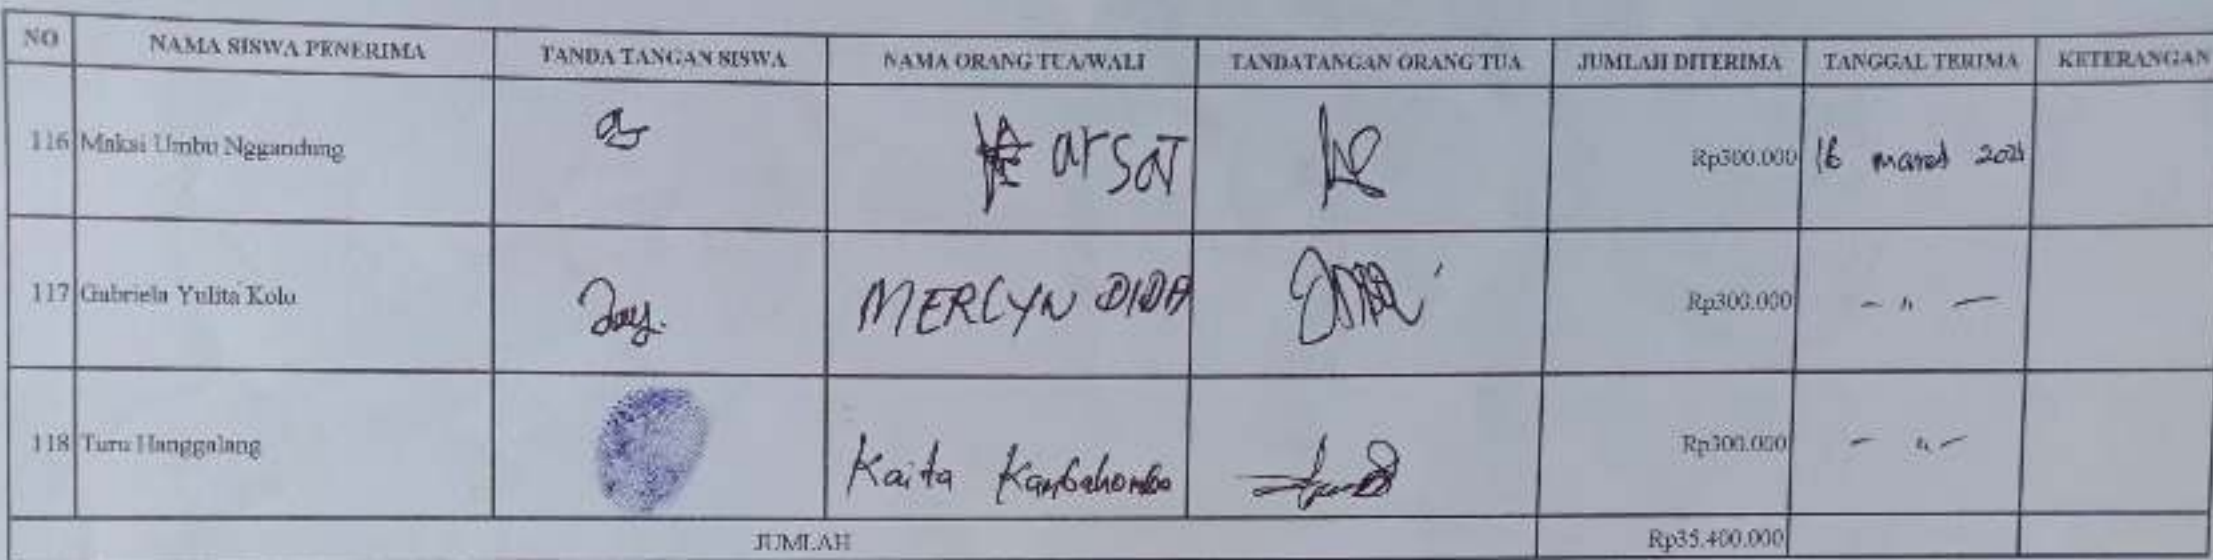 NO NAMA SISWA PENERIMA TANDA TANGAN SISWA NAMA ORANG TUA/WALI TANDATANGAN ORANG TUA JUMLAH DITERIMA TANGGAL TERIMA KETERANGAN
116 Maksi Umbu Nggandung arsat Rp300.000 16 maret
117 Gabriela Yulita Kolo MERLYN DIDA Rp300.000 - " -
118 Turu Hanggalang Kaita Kambahombo Rp300.000 - " -
JUMLAH Rp35.400.000